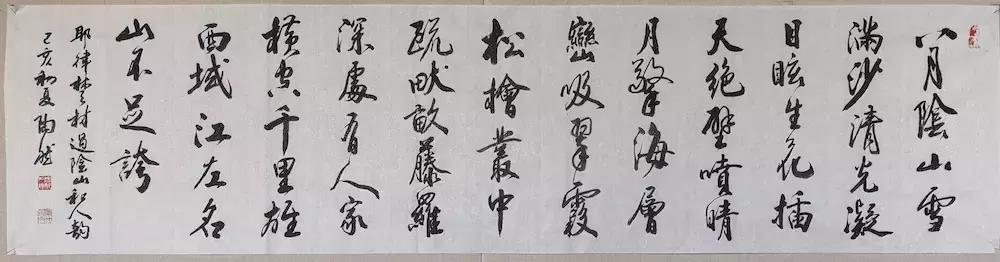 八月陰山雪
滿沙清光凝
目眩生花插
天絕壁噴晴
月擎海層
巒吸翠霞
松檜叢中
疏畎畝藤羅
深處有人家
橫空千里雄
西域江左名
山不足誇
耶律楚材過陰山和人韻
己亥初夏陶